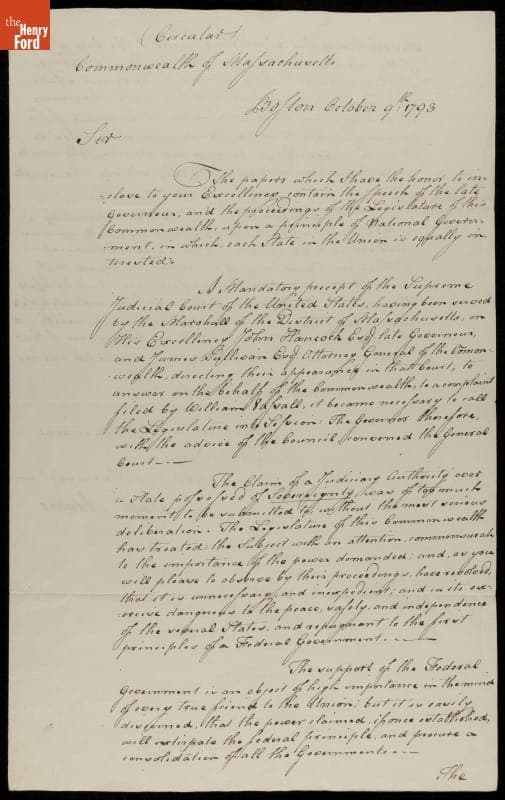 the
Henry
Ford
(Circular)
Commonwealth of Massachusetts
Boston October 9th. 1793
Sir
The papers which I have the honor, to in-
-close to your Excellency, contain the Speech of the late
Governour, and the proceedings of the Legislature of this
Commonwealth, upon a principle of National Govern-
-ment, in which, each State in the Union is equally in
terested.
A Mandatory precept of the Supreme
Judicial Court of the United States, having been served
by the Marshall of the District of Massachusetts, on
His Excellency John Hancock Esqr. late Governour,
and James Sullivan Esqr. Attorney General of the Common
-wealth, directing their appearance in that Court, to
answer on the behalf of the Commonwealth, to a complaint
filed by William Vassall, it became necessary to call
the Legislature into Session: The Governor therefore,
with the advice of the Council convened the General
Court —
The Claim of a Judiciary Authority over
a State possessed of Sovereignty was of too much
moment to be submitted to, without the most serious
deliberation. The Legislature of this Commonwealth
has treated the Subject with an attention, commensurate
to the importance of the power demanded; and, as you
will please to observe by their proceedings, have resolved,
that it is unnecessary, and inexpedient; and in its ex-
-ercise dangerous to the peace, safety, and independence
of the several States, and repugnant to the first
principles of a Federal Government. —
The support of the Federal
Government is an object of high importance in the mind
of every true friend to the Union; but it is easily
discerned, that the power claimed, if once established,
will extirpate the federal principle, and procure a
consolidation of all the Governments. —
The